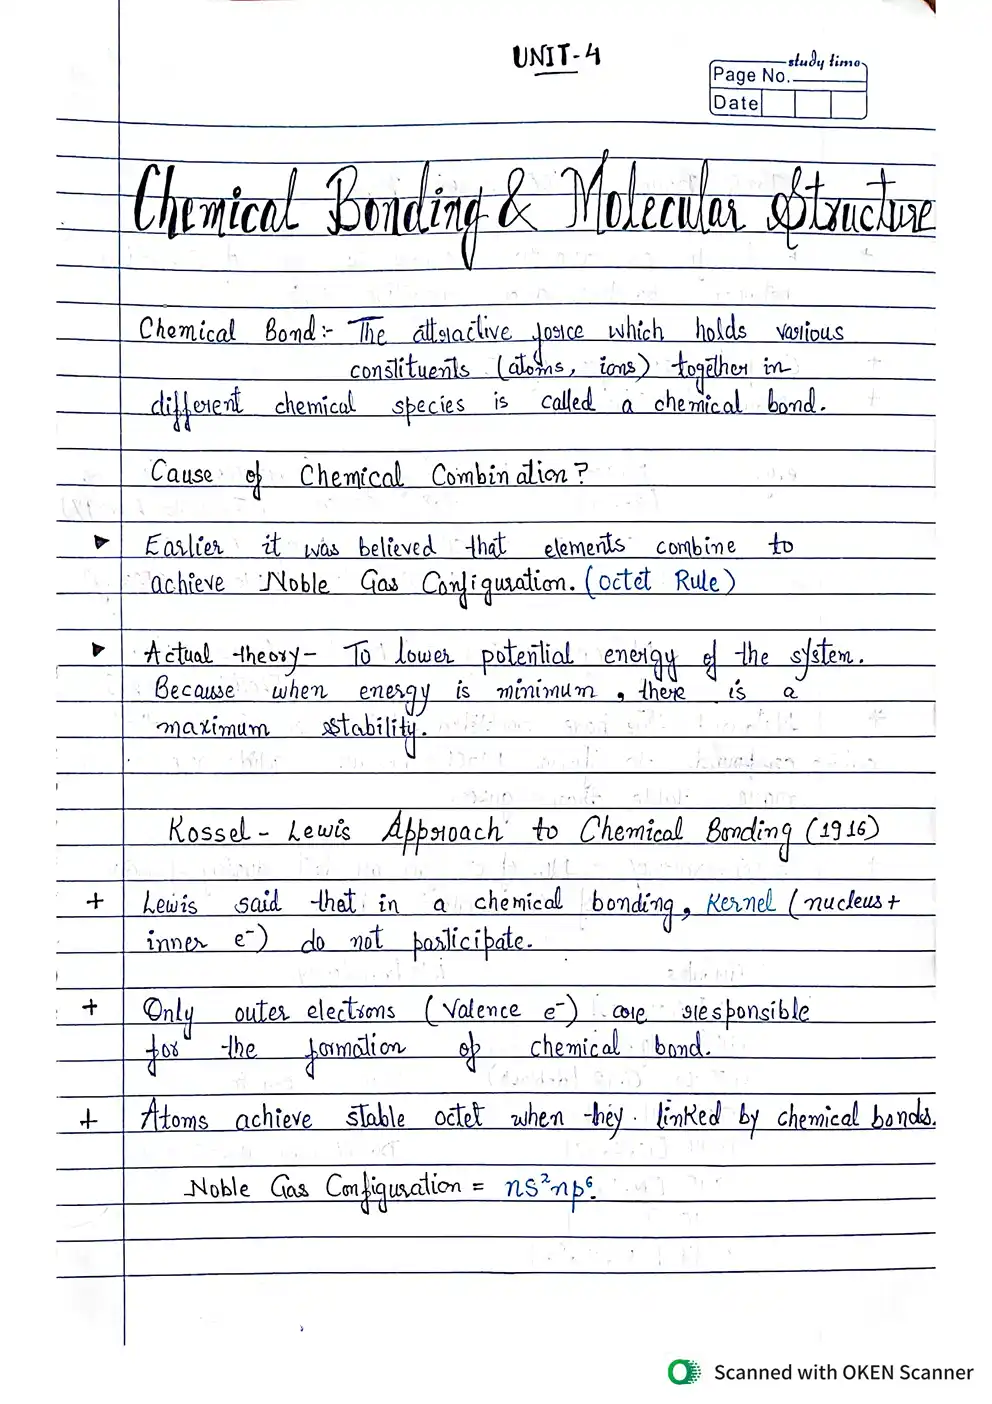 UNIT-4
study time
Page No.
Date
Chemical Bonding & Molecular Structure
Chemical Bond:- The attractive force which holds various
constituents (atoms, ions) together in
different chemical species is called a chemical bond.
Cause of Chemical Combination?
▶ Earlier it was believed that elements combine to
achieve Noble Gas Configuration. (octet Rule)
▶ Actual theory - To lower potential energy of the system.
Because when energy is minimum, there is a
maximum stability.
Kossel - Lewis Approach to Chemical Bonding (1916)
+ Lewis said that in a chemical bonding, Kernel (nucleus +
inner e⁻) do not participate.
+ Only outer electrons (Valence e⁻) are responsible
for the formation of chemical bond.
+ Atoms achieve stable octet when they linked by chemical bonds.
Noble Gas Configuration = ns²np⁶.
Scanned with OKEN Scanner